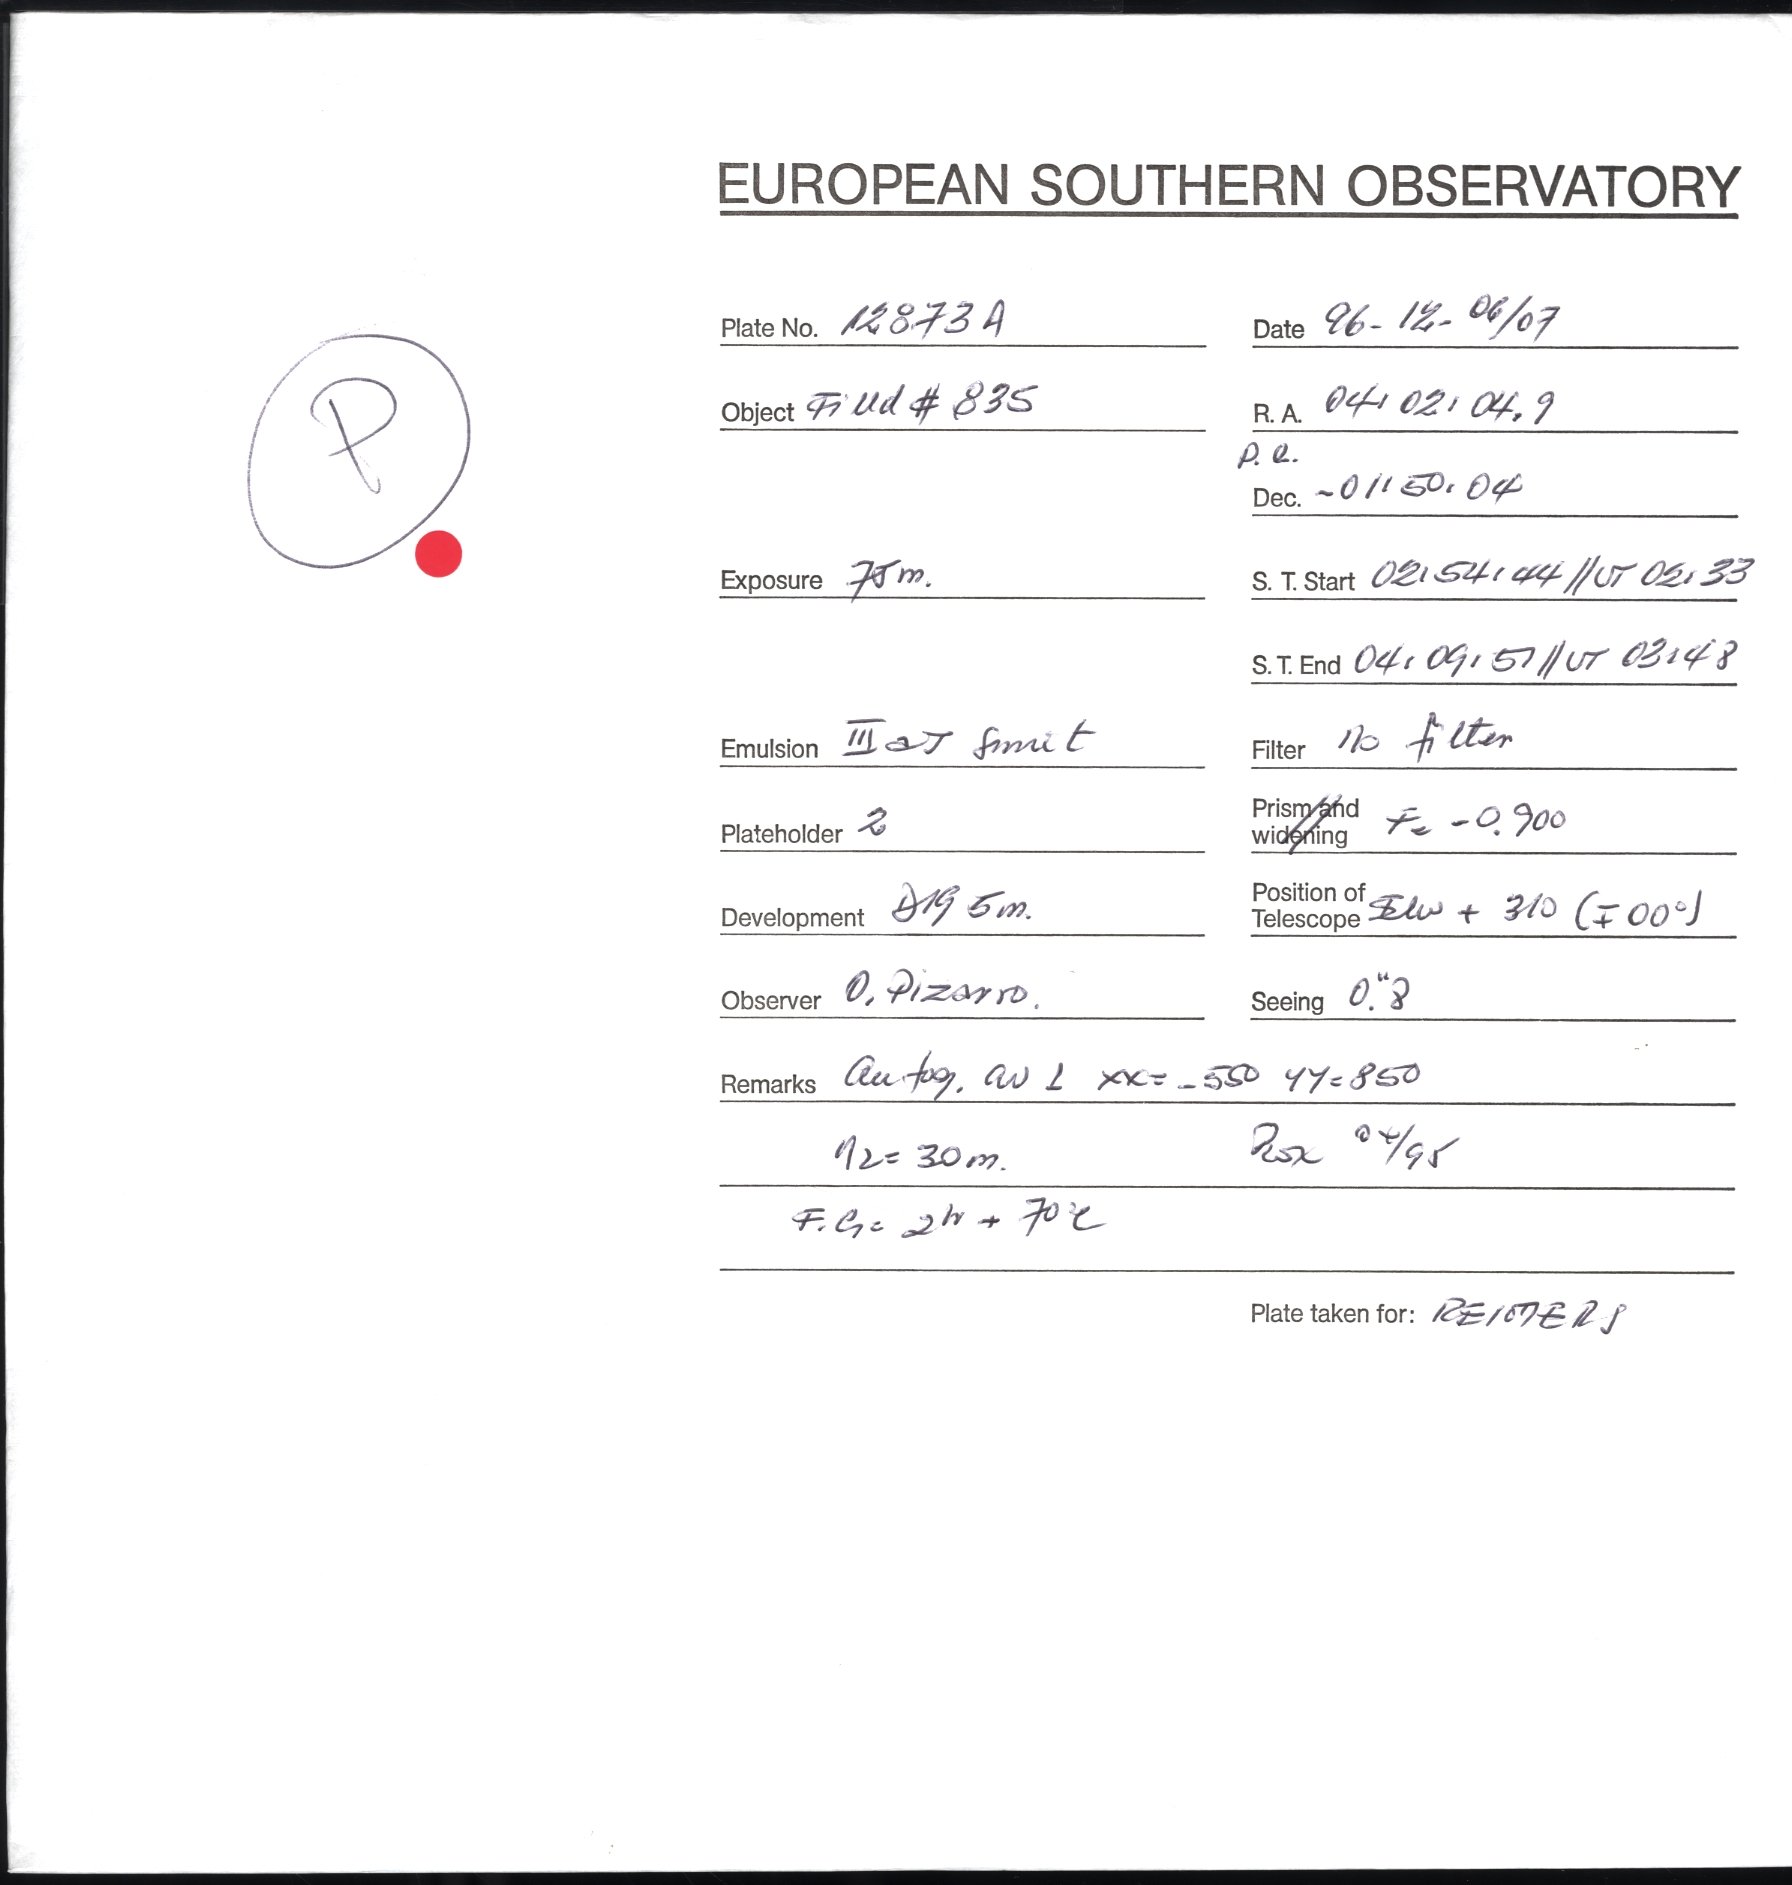 EUROPEAN SOUTHERN OBSERVATORY
P
Plate No. 12873A
Date 96-12-06/07
Object Field # 835
R. A. 04:02:04.9
P.R.
Dec. -01:50:04
Exposure 75m.
S. T. Start 02:54:44 // UT 02:33
S. T. End 04:09:57 // UT 03:48
Emulsion III aJ
Filter no filter
Plateholder 2
Prism and
widening F= -0.900
Development D19 5m.
Position of
Telescope + 310 (I 00°)
Observer O. Pizarro.
Seeing 0."8
Remarks Autog. xx= -550 yy=850
N2= 30m.
04/95
F.G= 2h + 70°C
Plate taken for: REIMERS